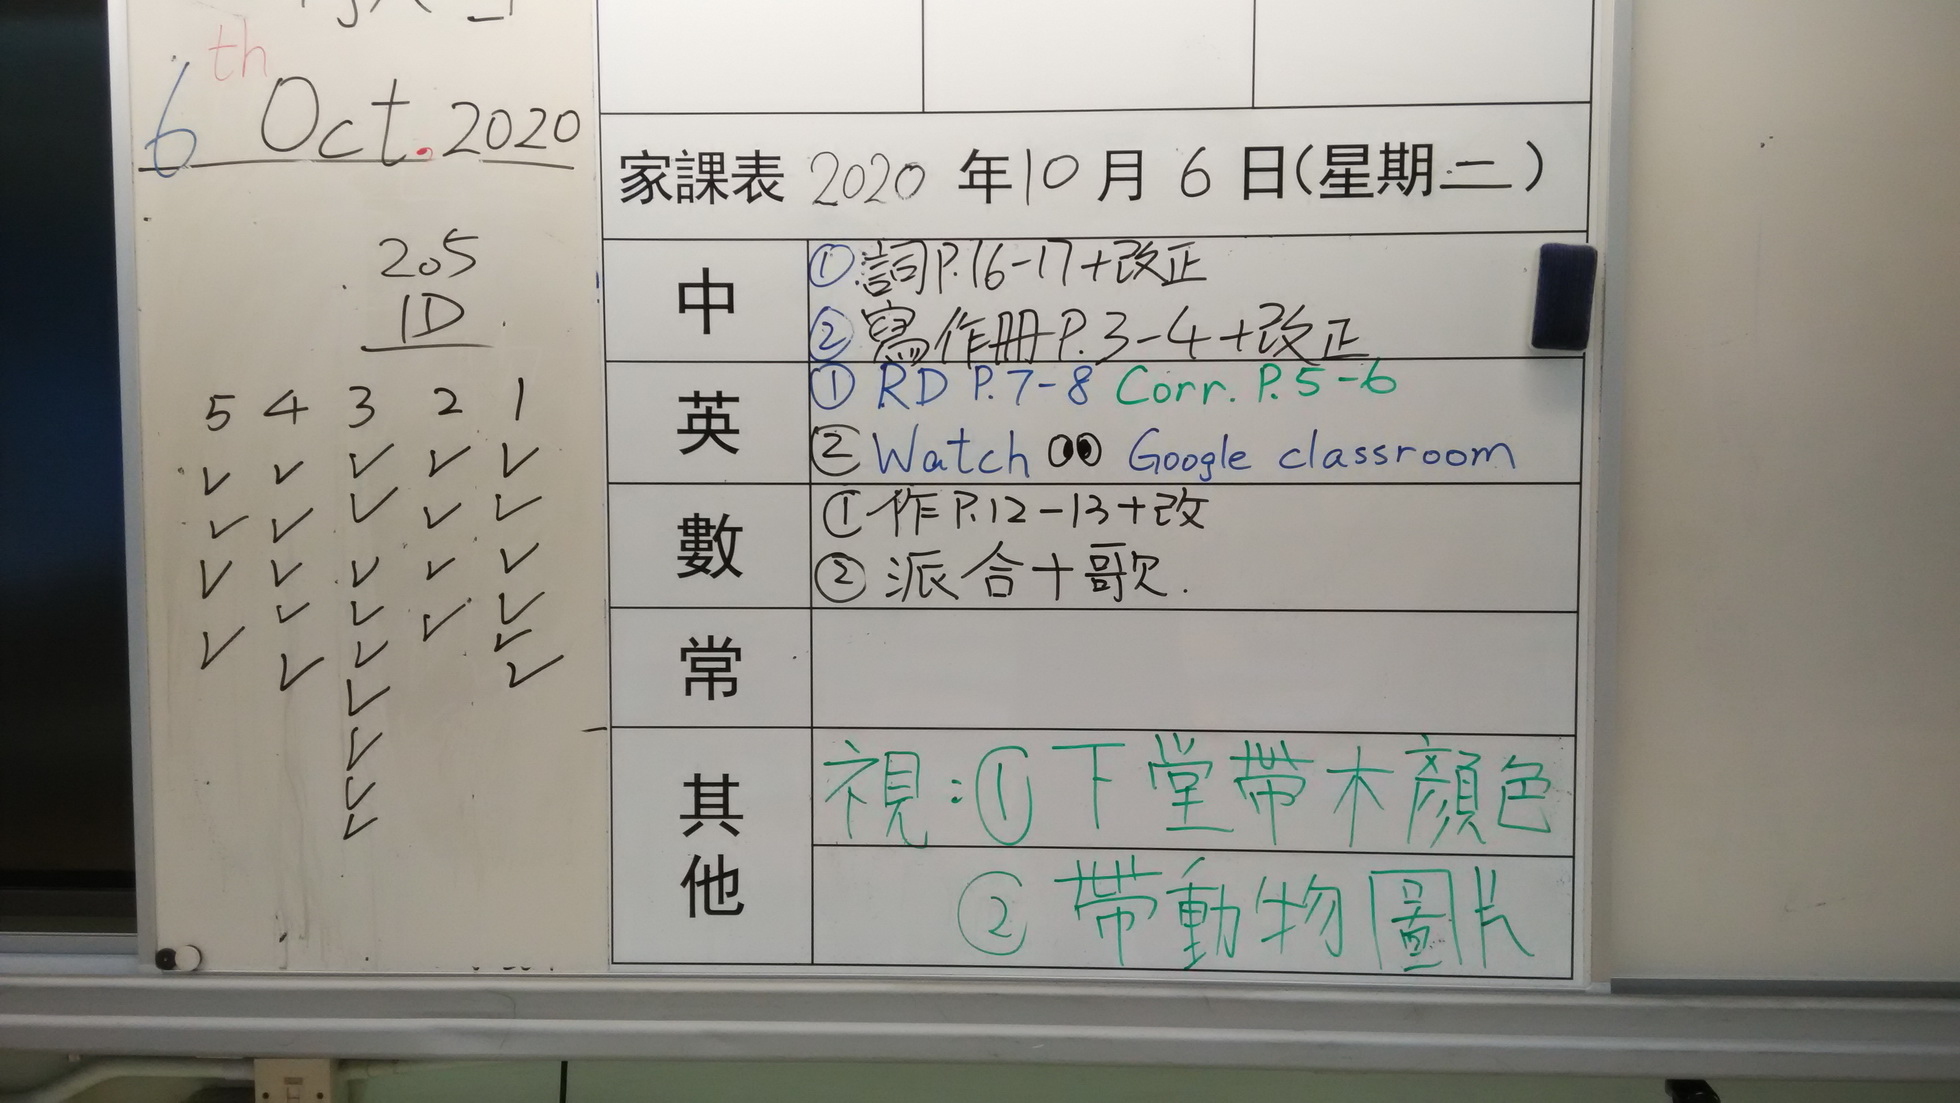 6th Oct. 2020
205
1D
5 4 3 2 1
家課表 2020 年 10 月 6 日(星期二)
中
①詞P.16-17+改正
②寫作冊P.3-4+改正
英
① RD P.7-8 Corr. P.5-6
② Watch Google classroom
數
①作P.12-13+改
②派合十歌.
常
其他
視:①下堂帶木顏色
②帶動物圖片